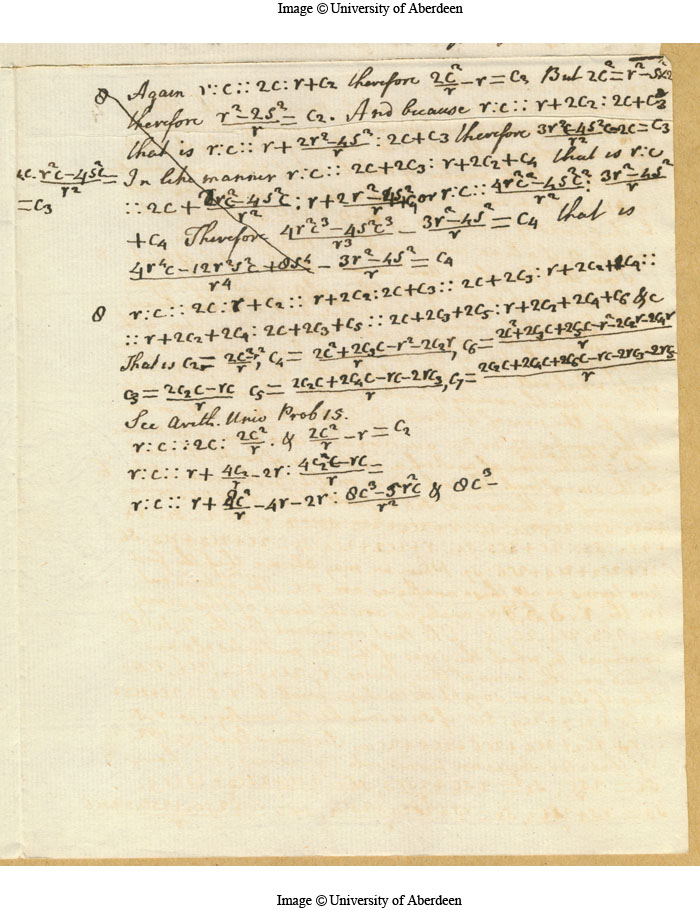 Image © University of Aberdeen
8 Again r:c :: 2c : r+c2 therefore 2c²/r − r = c2 But 2c² =
therefore r²−2s²/r = c2. And because r:c :: r+2c2 : 2c+c3
that is r:c :: r + 2r²−4s²/r : 2c+c3 therefore 3r²c−4s²c/r² −2c = c3
4c. r²c−4s²c/r² = In like manner r:c :: 2c+2c3 : r+2c2+c4 that is r:c
= c3 :: 2c + 2r²c−4s²c/r² : r+2r²−4s²/r +c4 or r:c :: 4r²c²−4s²c²/r² : 3r²−4s²/r
+c4 Therefore 4r²c³−4s²c³/r³ − 3r²−4s²/r = c4 that is
4r⁴c−12r²s²c+8s⁴/r⁴ − 3r²−4s²/r = c4
8 r:c :: 2c : r+c2 :: r+2c2 : 2c+c3 :: 2c+2c3 : r+2c2+c4 ::
:: r+2c2+2c4 : 2c+2c3+c5 :: 2c+2c3+2c5 : r+2c2+2c4+c6 &c
That is c2 = 2c²−r²/r, c4 = 2c²+2c3c−r²−2c2r/r, c6 = 2c²+2c3c+2c5c−r²−2c2r−2c4r/r
c3 = 2c2c−rc/r c5 = 2c2c+2c4c−rc−2rc3/r, c7 = 2c2c+2c4c+2c6c−rc−2rc3−2rc5/r
See Arith. Univ Prob 15.
r:c :: 2c : 2c²/r . & 2c²/r − r = c2
r:c :: r + 4c2/r − 2r : 4c²c−rc/r =
r:c :: r + 8c²/r − 4r − 2r : 8c³−5r²c/r² & 8c³ −
Image © University of Aberdeen